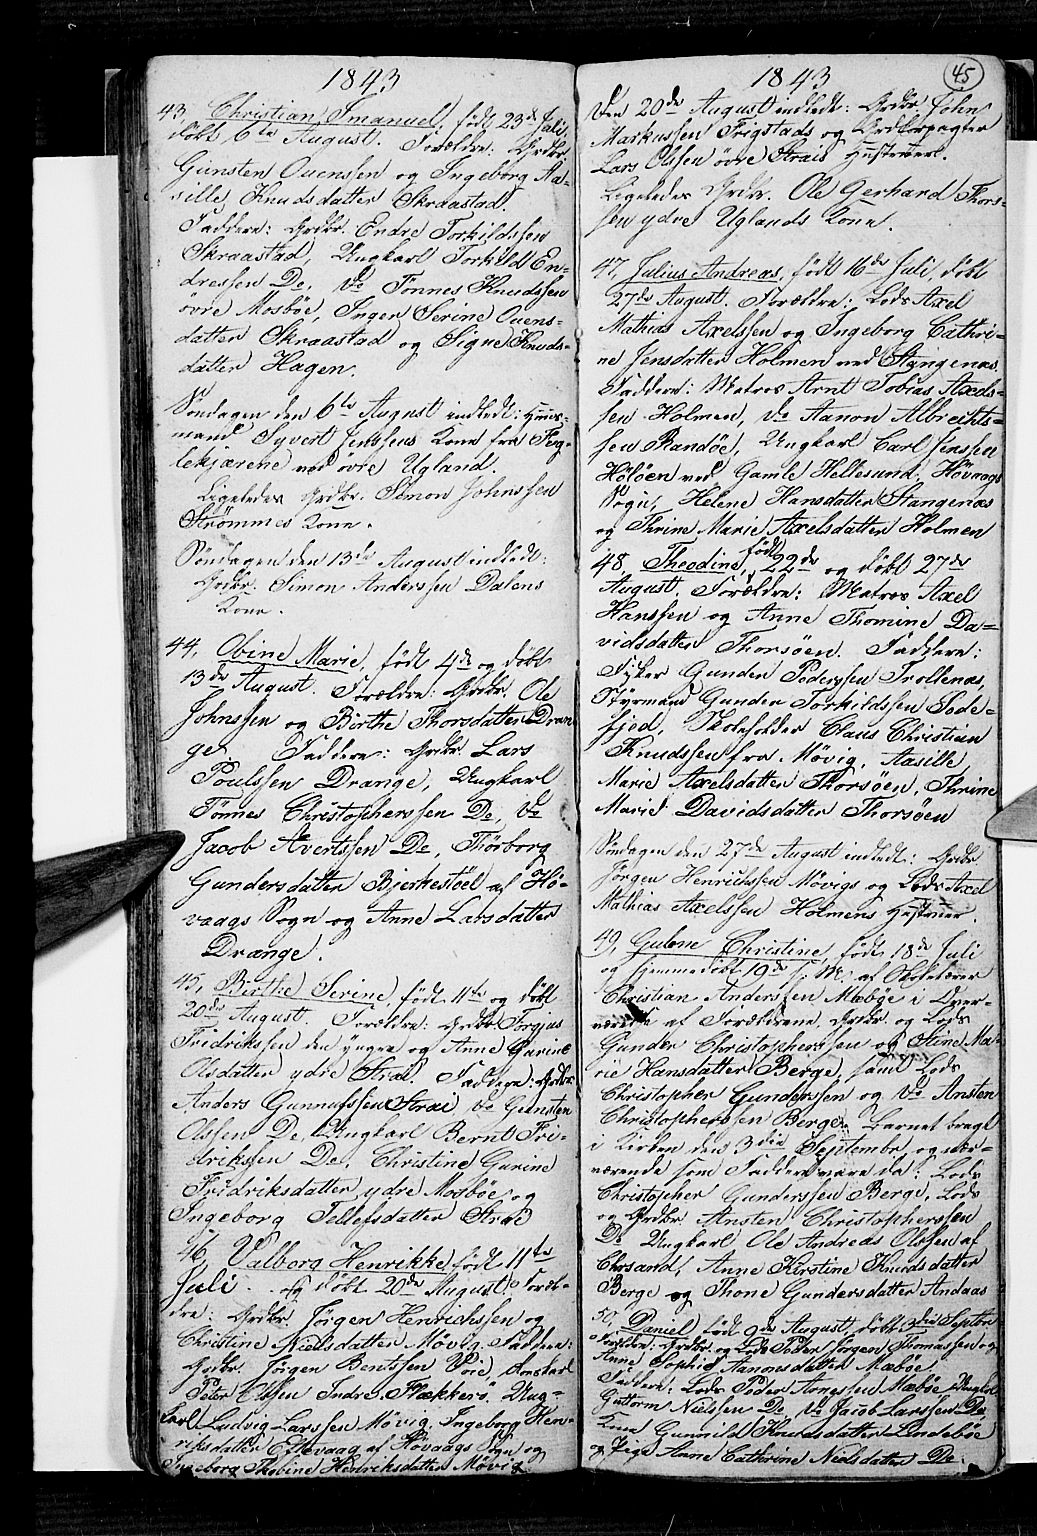 1843
43, Christian Imanuel, født 23de Juli,
døbt 6te August. Forældre: Grdbr.
Gunsten Ouenssen og Ingeborg Aa-
sille Knudsdatter Skraastad.
Faddere: Grdbr. Endre Torkildssen
Skraastad, Ungkarl Torkild En-
dressen De, Do Tønnes Knudssen
øvre Mosbøe, Inger Serine Ouens-
datter Skraastad og Signe Knuds-
datter Hagen.
Søndagen den 6te August indledt: Huus-
mand Syvert Jenssens Kone fra
lekjærene ved øvre Ugland.
Ligeledes Grdbr. Simon Johnssen
Strømmes Kone.
Søndagen den 13de August indledt:
Grdbr. Simon Anderssen Dalens
Kone.
44, Obine Marie, født 4de og døbt
13de August. Forældre: Grdbr. Ole
Johnssen og Birthe Thorsdatter Dran
ge Faddere: Grdbr. Lars
Poulssen Drange, Ungkarl
Tønnes Christopherssen De, Do
Jacob Avertssen De, Thorborg
Gundersdatter Bjerkestøel af Hø-
vaags Sogn og Anne Larsdatter
Drange.
45, Birthe Serine, født 11te og døbt
20de August. Forældre: Grdbr. Torjus
Fridrikssen den yngre og Anne Gurine
Olsdatter ydre Strai. Faddere: Grdbr.
Anders Gunnufssen Strai, Do Gunsten
Olssen De, Ungkarl Bernt Fri-
drikssen De, Christine Gurine
Fridriksdatter ydre Mosbøe og
Ingeborg Tellefsdatter Strai
46, Valborg Henrikke, født 11te
Juli og døbt 20de August. Foræl-
dre: Grdbr. Jørgen Henrichssen og
Christine Nielsdatter Møvig. Faddere:
Grdbr. Jørgen Bentssen Voie,
Peter Olssen Indre Flekkerø, Ung-
karl Ludvig Larssen Møvig, Ingeborg Hen-
riksdatter Eftevaag af Høvaags Sogn og
Ingeborg Thobine Henriksdatter Møvig
1843
45
Den 20de August indledt: Grdbr. John
Markussen Frigstads og Grdforpagter
Lars Olssen øvre Strais Hustruer.
Ligeledes Grdbr. Ole Gerhard Thors-
sen ydre Uglands Kone.
47, Julius Andreas, født 16de Juli, døbt
27de August. Forældre: Lods Axel
Mathias Axelssen og Ingeborg Cathri-
ne Jensdatter Holmen ved Stangenæs.
Faddere: Matros Arnt Tobias Axels-
sen Holmen, Do Aanon Albrechts-
sen Randøe, Ungkarl Carl Jenssen
Höløen ved Gamle Hellesund, Høvaags
Sogn, Helene Hansdatter Stangenæs
og Thrine Marie Axelsdatter Holmen
48, Theodine, født 22de og døbt 27de
August. Forældre: Matros Axel
Hanssen og Anne Thomine Da-
vidsdatter Thorsøen. Faddere:
Fisker Gunder Pederssen Trollenæs,
Styrmand Gunder Torkildssen Lode-
fjed, Skoleholder Claus Christian
Knudssen fra Møvig, Aasille
Marie Axelsdatter Thorsøen, Thrine
Marie Davidsdatter Thorsøen
Søndagen den 27de August indledt: Grdbr.
Jørgen Henrichssen Møvigs og Lods Axel
Mathias Axelssen Holmens Hustruer.
49, Gulene Christine, født 18de Juli
og hjemmedøbt 19de s. M. af Skolelærer
Christian Anderssen Mæbøe i Over-
værelse af Forældrene, Grdbr. og Lods
Gunder Christopherssen og Stine Ma-
rie Hansdatter Berge, samt Lods
Christopher Gunderssen og Do Ansten
Christopherssen Berge. Barnet bragt
i Kirken den 3die Septembr., og nær-
værende som Faddere vare da: Lods
Christopher Gunderssen Berge, Lods
og Grdbr. Ansten Christopherssen
De Ungkarl Ole Andreas Olssen af
Chrsand, Anne Kirstine Knudsdatter
Berge og Thone Gundersdatter Andaas
50, Daniel født 9de August, døbt 3die Septbr
Forældre: Grdbr. og Lods Peder Jørgen Thomassen og
Anne Sophie Aanonsdatter Mæbøe.
Faddere: Lods Peder Arnessen Mæbøe, Ungkarl
Guttorm Nielssen De, Do Jacob Larssen De,
Kone Gunvild Knudsdatter Lindebøe
og Pige Anne Cathrine Nielsdatter De